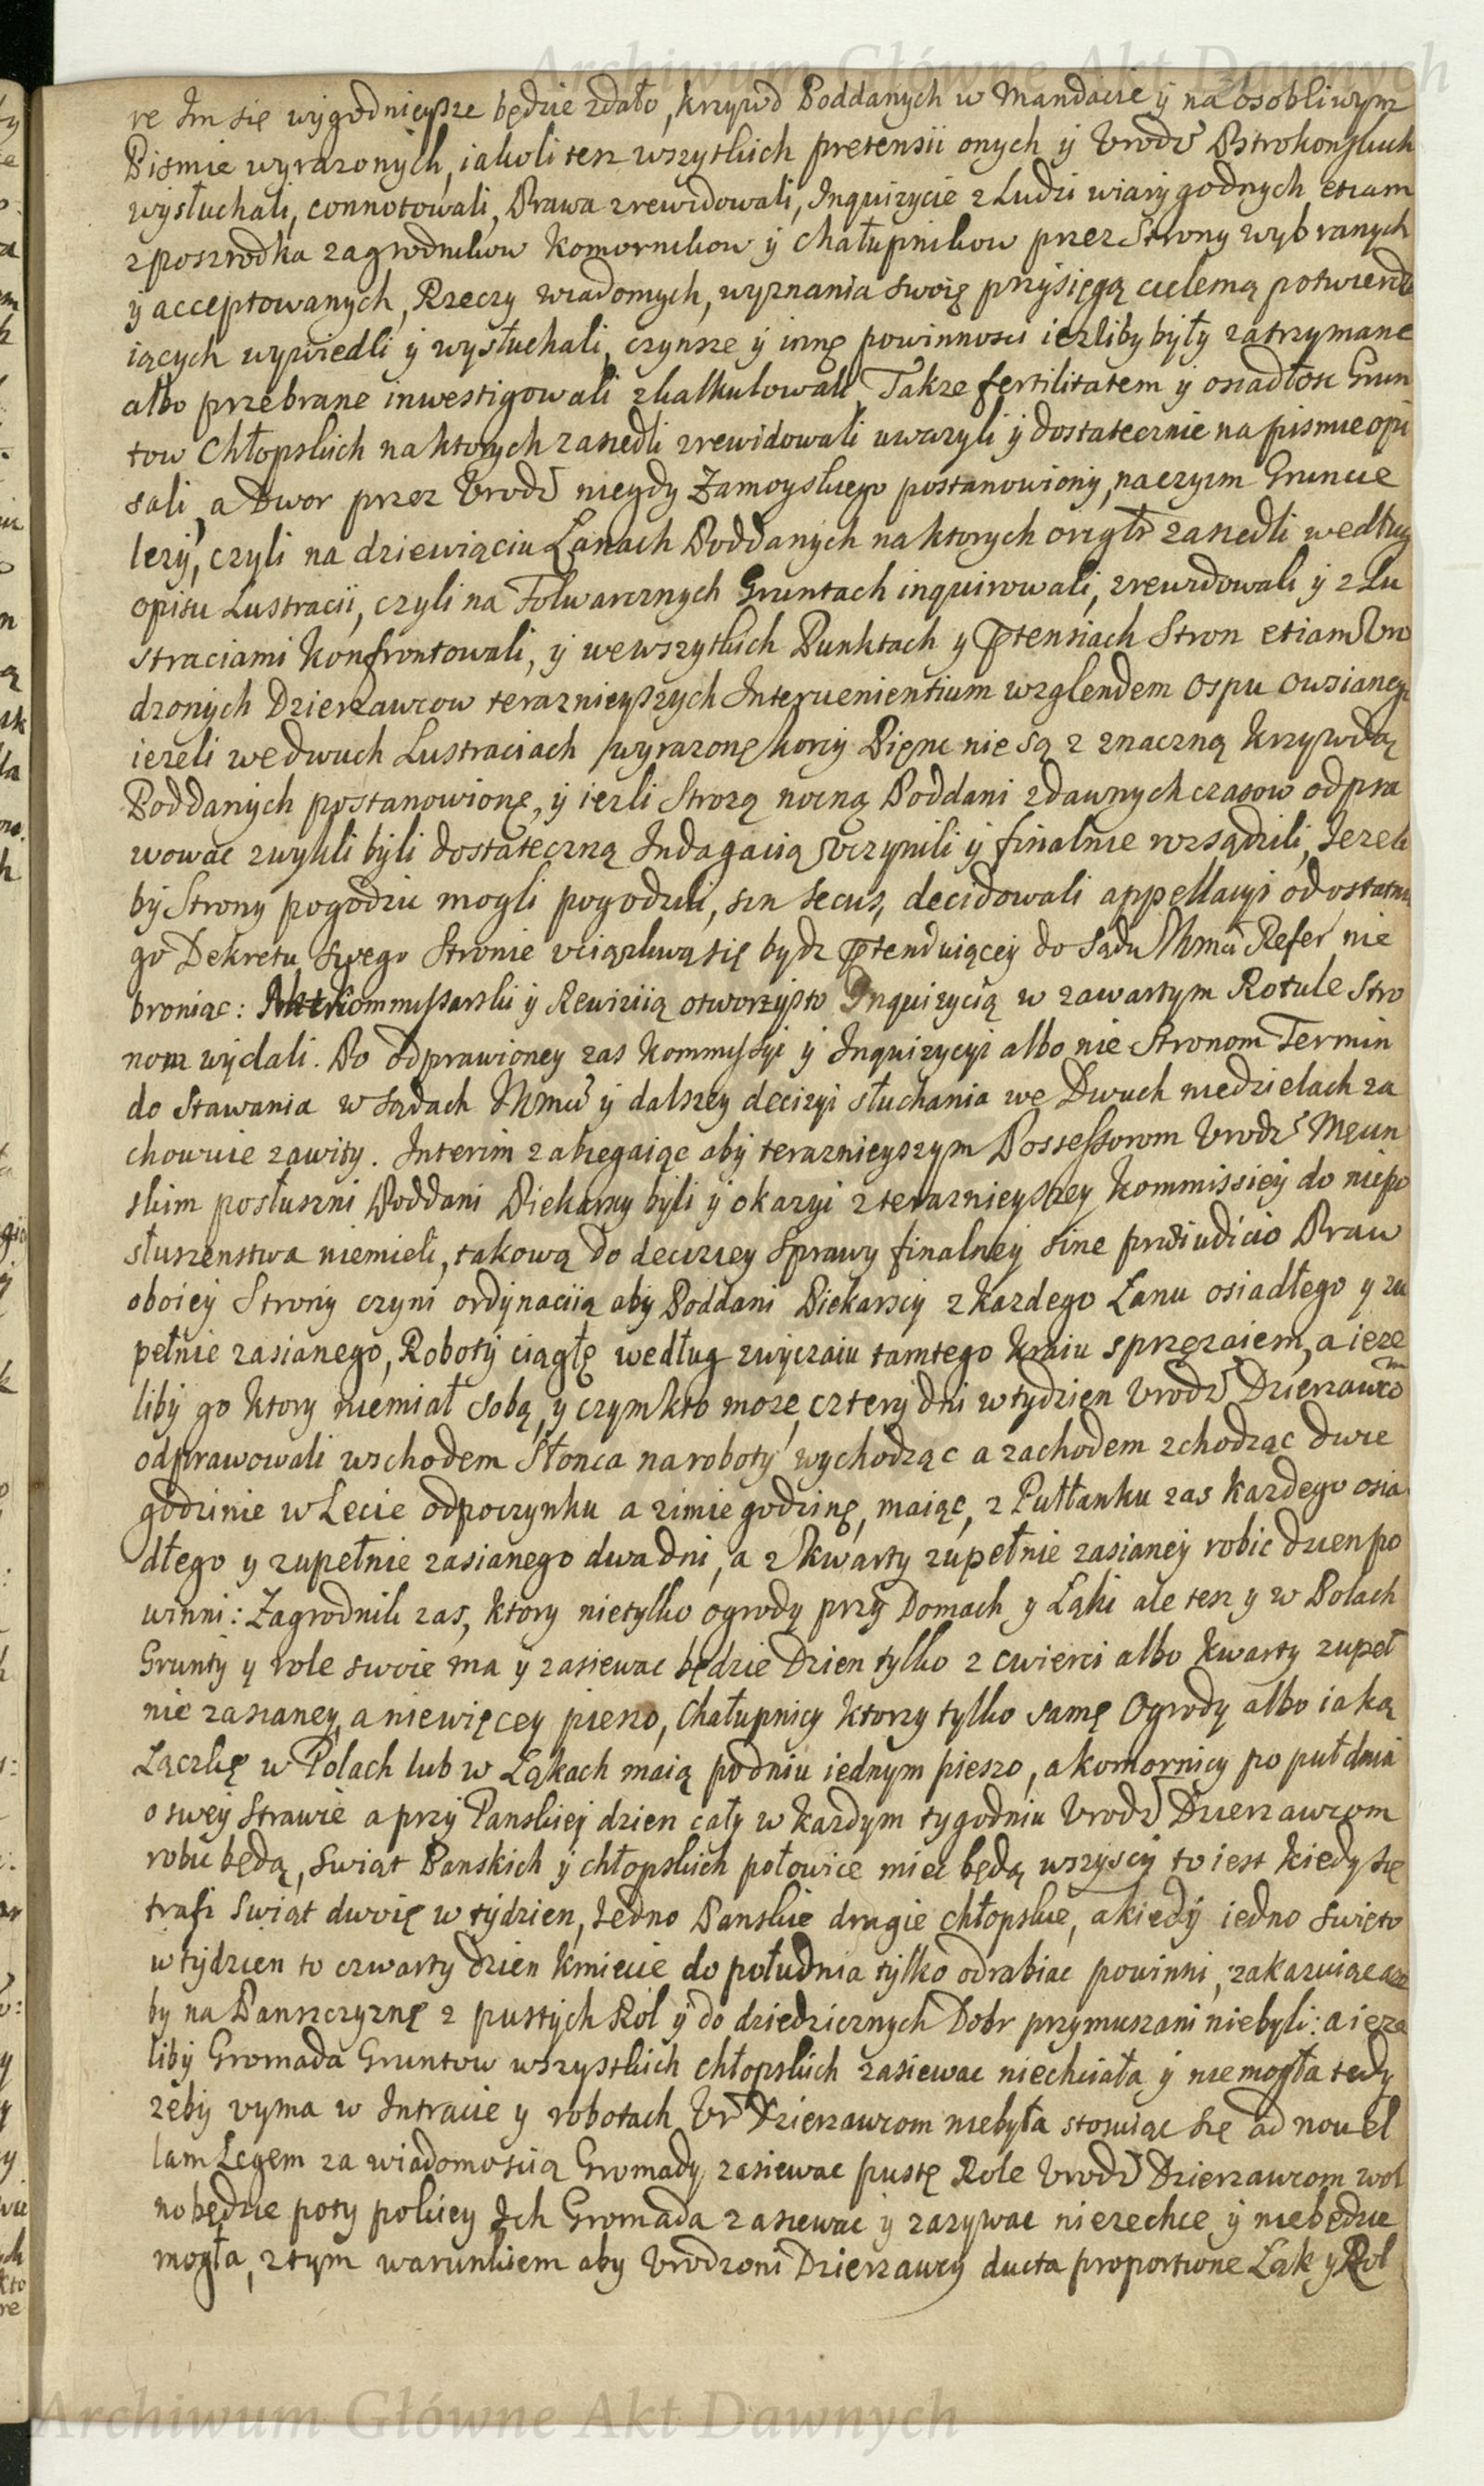 Archiwum Główne Akt Dawnych
re Im się wygodnieysze będzie zdało, krzywd Poddanych w Mandacie y na osobliwym
Pismie wyrazonych, iakoli tesz wszytkich pretensii onych y Vrodz Ostrokonskich
wysłuchali, connotowali, Prawa zrewidowali, Inquizycie z Ludzi wiary godnych etiam
z poszrodka zagrodnikow Komornikow y Chałupnikow przez Strony wybranych
y acceptowanych, Rzeczy wiadomych, wyznania swoię przysięgą cielemą potwierdz
iących wywiedli y wysłuchali, czynsze y innę powinnosci iezliby były zatrzymane
albo przebrane inwestigowali zkalkulowali, Takze fertilitatem y osiadłosc Grun
tow Chłopskich na ktorych zasiedli zrewidowali uwazyli y dostatecznie na pismie opi
sali, a Dwor przez Vrodz niegdy Zamoyskiego postanowiony, na czyim Gruncie
lezy, czyli na dziewiąciu Łanach Poddanych na ktorych orighr zasiedli według
opisu Lustracii, czyli na Folwarcznych Gruntach inquirowali, zrewidowali y z Lu
straciami Konfrontowali, y we wszytkich Punktach y ptensiach Stron etiam Vro
dzonych Dzierzawcow teraznieyszych Interuenientium wzglendem Ospu Owsianego
iezeli we dwuch Lustraciach wyrazonę korcy Pięnc nie są z znaczną Krzywdą
Poddanych postanowionę, y iezli Strozą nocną Poddani zdawnych czasow odpra
wowac zwykli byli dostateczną Indagacią vczynili y finalnie rozsądzili, Iezeli
by Strony pogodzic mogli pogodzili, sin secus, decidowali appellacyi od ostatni
go Dekretu swego Stronie vciązliwą się bydz ptenduiącey do Sądu NMmci Refer nie
broniąc: Akt Kommissarski y Rewizią otworzysto Inquizycią w zawartym Rotule Stro
nom wydali. Po odprawioney zas Kommissyi y Inquizycyi albo nie Stronom Termin
do stawania w sądach NMmci y dalszey decizyi słuchania we Dwuch niedzielach za
chowuie zawity. Interim zabiegaiąc aby teraznieyszym Possessorom Vrodz Męcin
skim posłuszni Poddani Piekarscy byli y okazyi z teraznieyszey Kommissiey do niepo
słuszenstwa niemieli, takową do deciziey Sprawy finalney sine prӕiudicio Praw
oboiey Strony czyni ordynaciią aby Poddani Piekarscy z kazdego Łanu osiadłego y zu
pełnie zasianego, Roboty ciągłę według zwyczaiu tamtego Kraiu sprzęzaiem, a ieze
liby go ktory niemiał sobą, y czym kto moze, cztery dni w tydzien Vrodz Dzierzawcom
odprawowali wschodem Słonca na roboty wychodząc a zachodem zchodząc dwie
godzinie w Lecie odpoczynku a zimie godzinę, maiąc, z Pułłanku zas kazdego osia
dłego y zupełnie zasianego dwa dni, a z kwarty zupełnie zasianey robic dzien po
winni: Zagrodnik zas, ktory nietylko ogrody przy Domach y Łąki ale tesz y w Polach
Grunty y role swoie ma y zasiewac będzie Dzien tylko z cwierci albo kwarty zupeł
nie zasianey, a niewięcey pieszo, Chałupnicy ktorzy tylko samę Ogrody albo iaką
Łączkę w Polach lub w Łąkach maią po dniu iednym pieszo, a komornicy po puł dnia
o swey Strawie a przy Panskiey dzien cały w kazdym tygodniu Vrodz Dzierzawcom
robic będą, Swiąt Panskich y chłopskich połowice miec będą wszyscy to iest kiedy się
trafi Swiąt dwoię w tydzien, Iedno Panskie drugie chłopskie, a kiedy iedno Swięto
w tydzien to czwarty dzien kmiecie do południa tylko odrabiac powinni, zakazuiąc aze
by na Panszczyznę z pustych Rol y do dziedzicznych Dobr przymuszani niebyli: a ieze
liby Gromada Gruntow wszystkich chłopskich zasiewac niechciała y niemogła tedy
zeby vyma w Intracie y robotach Vr Dzierzawcom niebyła stosuiąc się ad nouel
lam Legem za wiadomoscią Gromady, zasiewac pustę Role Vrodz Dzierzawcom wol
no będzie poty pokiey Ich Gromada zasiewac y zazywac niezechce y niebędzie
mogła, z tym warunkiem aby Vrodzoni Dzierzawcy ducta proportione Łąk y Rol
Archiwum Główne Akt Dawnych